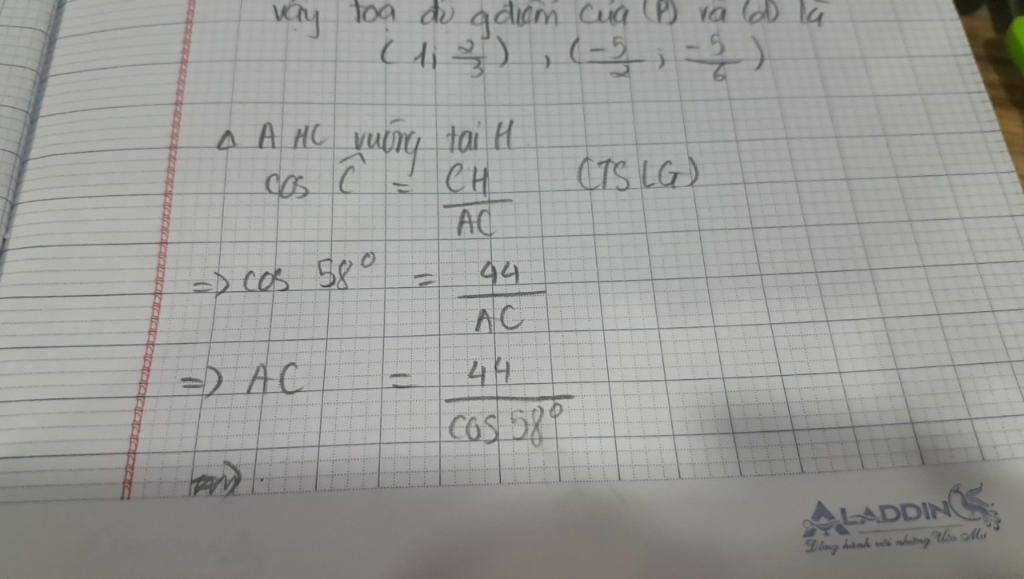 vậy toạ độ gđiểm của (P) và (d) là
(1; 2/3), (-5/2; -5/6)
Δ AHC vuông tại H
cos Ĉ = CH/AC (TSLG)
=> cos 58° = 44/AC
=> AC = 44/cos 58°
=>
ALADDIN
Đồng hành với những Ước Mơ